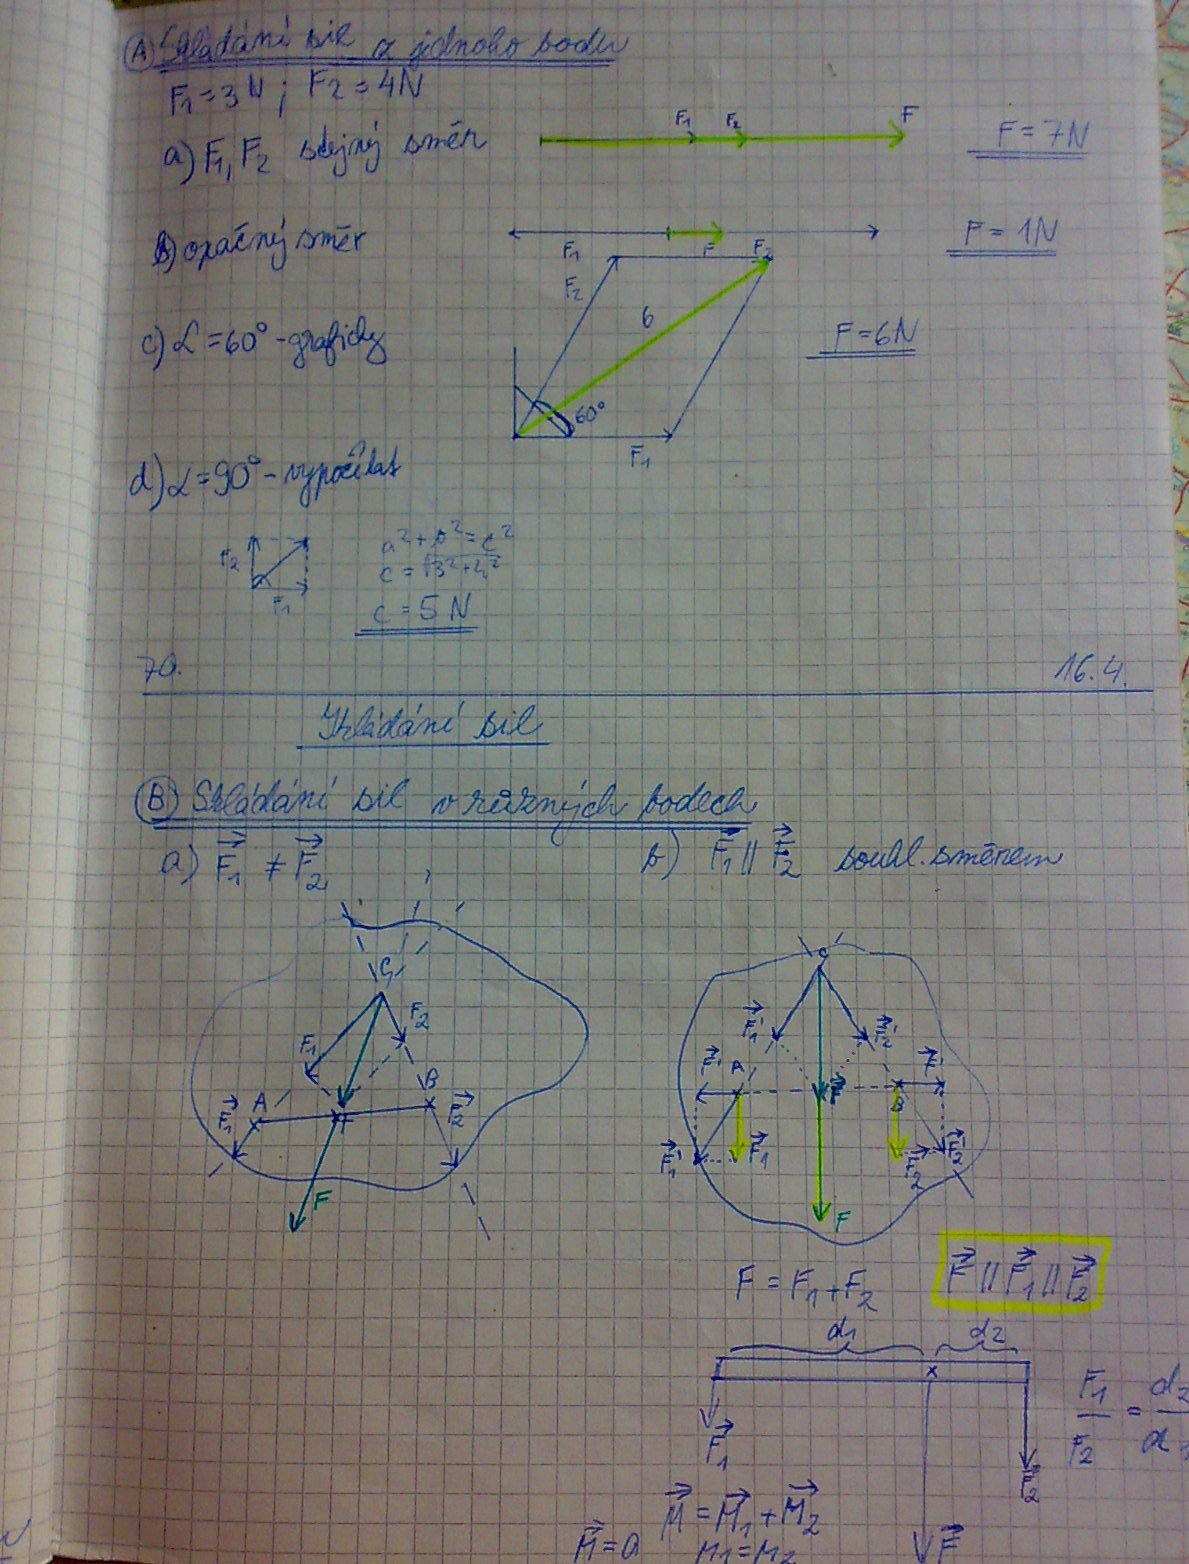 Ⓐ Skládání sil z jednoho bodu
F₁ = 3N ; F₂ = 4N
a) F₁, F₂ stejný směr
F₁ F₂ F
F = 7N
b) opačný směr
F₁ F F₂
F = 1N
c) α = 60° - graficky
F₂
6
60°
F₁
F = 6N
d) α = 90° - vypočítat
F₂
F₁
a² + b² = c²
c = √3² + 4²
c = 5 N
70.
16.4.
Skládání sil
Ⓑ Skládání sil v různých bodech
a) F₁ ≠ F₂
b) F₁ || F₂ souhl. směrem
C
F₁ F₂
A B
F₁ F₂
F
C
F₁' F₂'
A B
F₁' F₁ F₂ F₂'
F
F = F₁ + F₂
F || F₁ || F₂
d₁ d₂
x
F₁
F₂
F₁ = d₂
F₂ d
M = M₁ + M₂
M = 0 M₁ = M₂
F